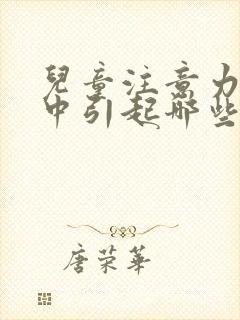 兒童注意力
中引起那些
唐荣華